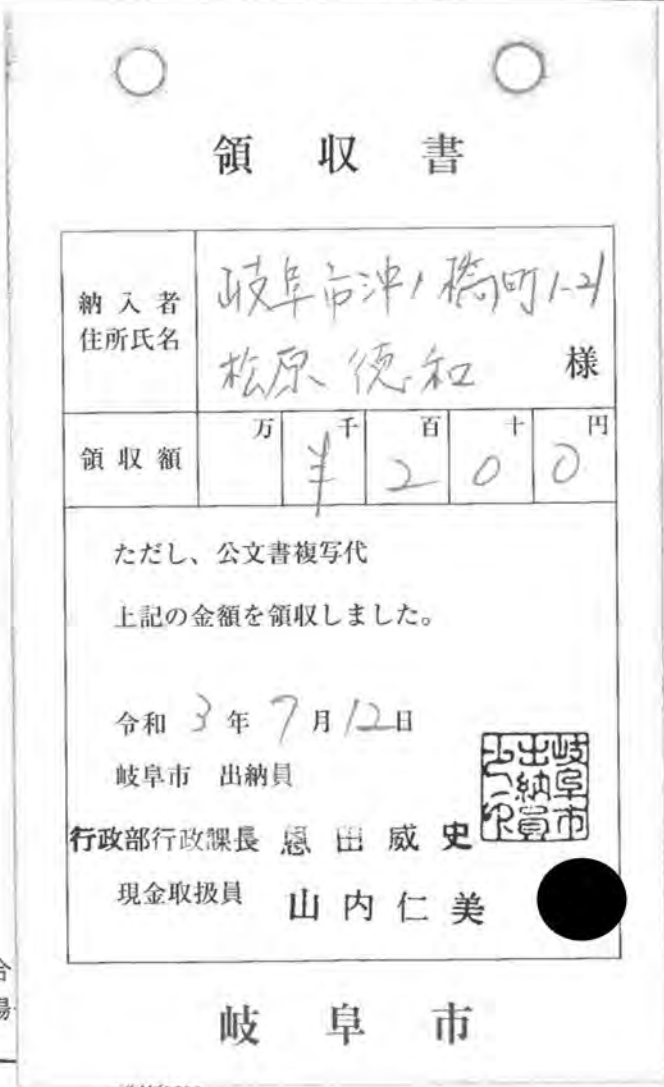 領収書
納入者
住所氏名
岐阜市沖ノ橋町1-21
松原 徳和 様
領収額
万 千 百 十 円
¥ 2 0 0
ただし、公文書複写代
上記の金額を領収しました。
令和 3 年 7 月 12 日
岐阜市 出納員
行政部行政課長 恩田威史
岐阜市
出納員
現金取扱員 山内仁美
岐阜市
合
場